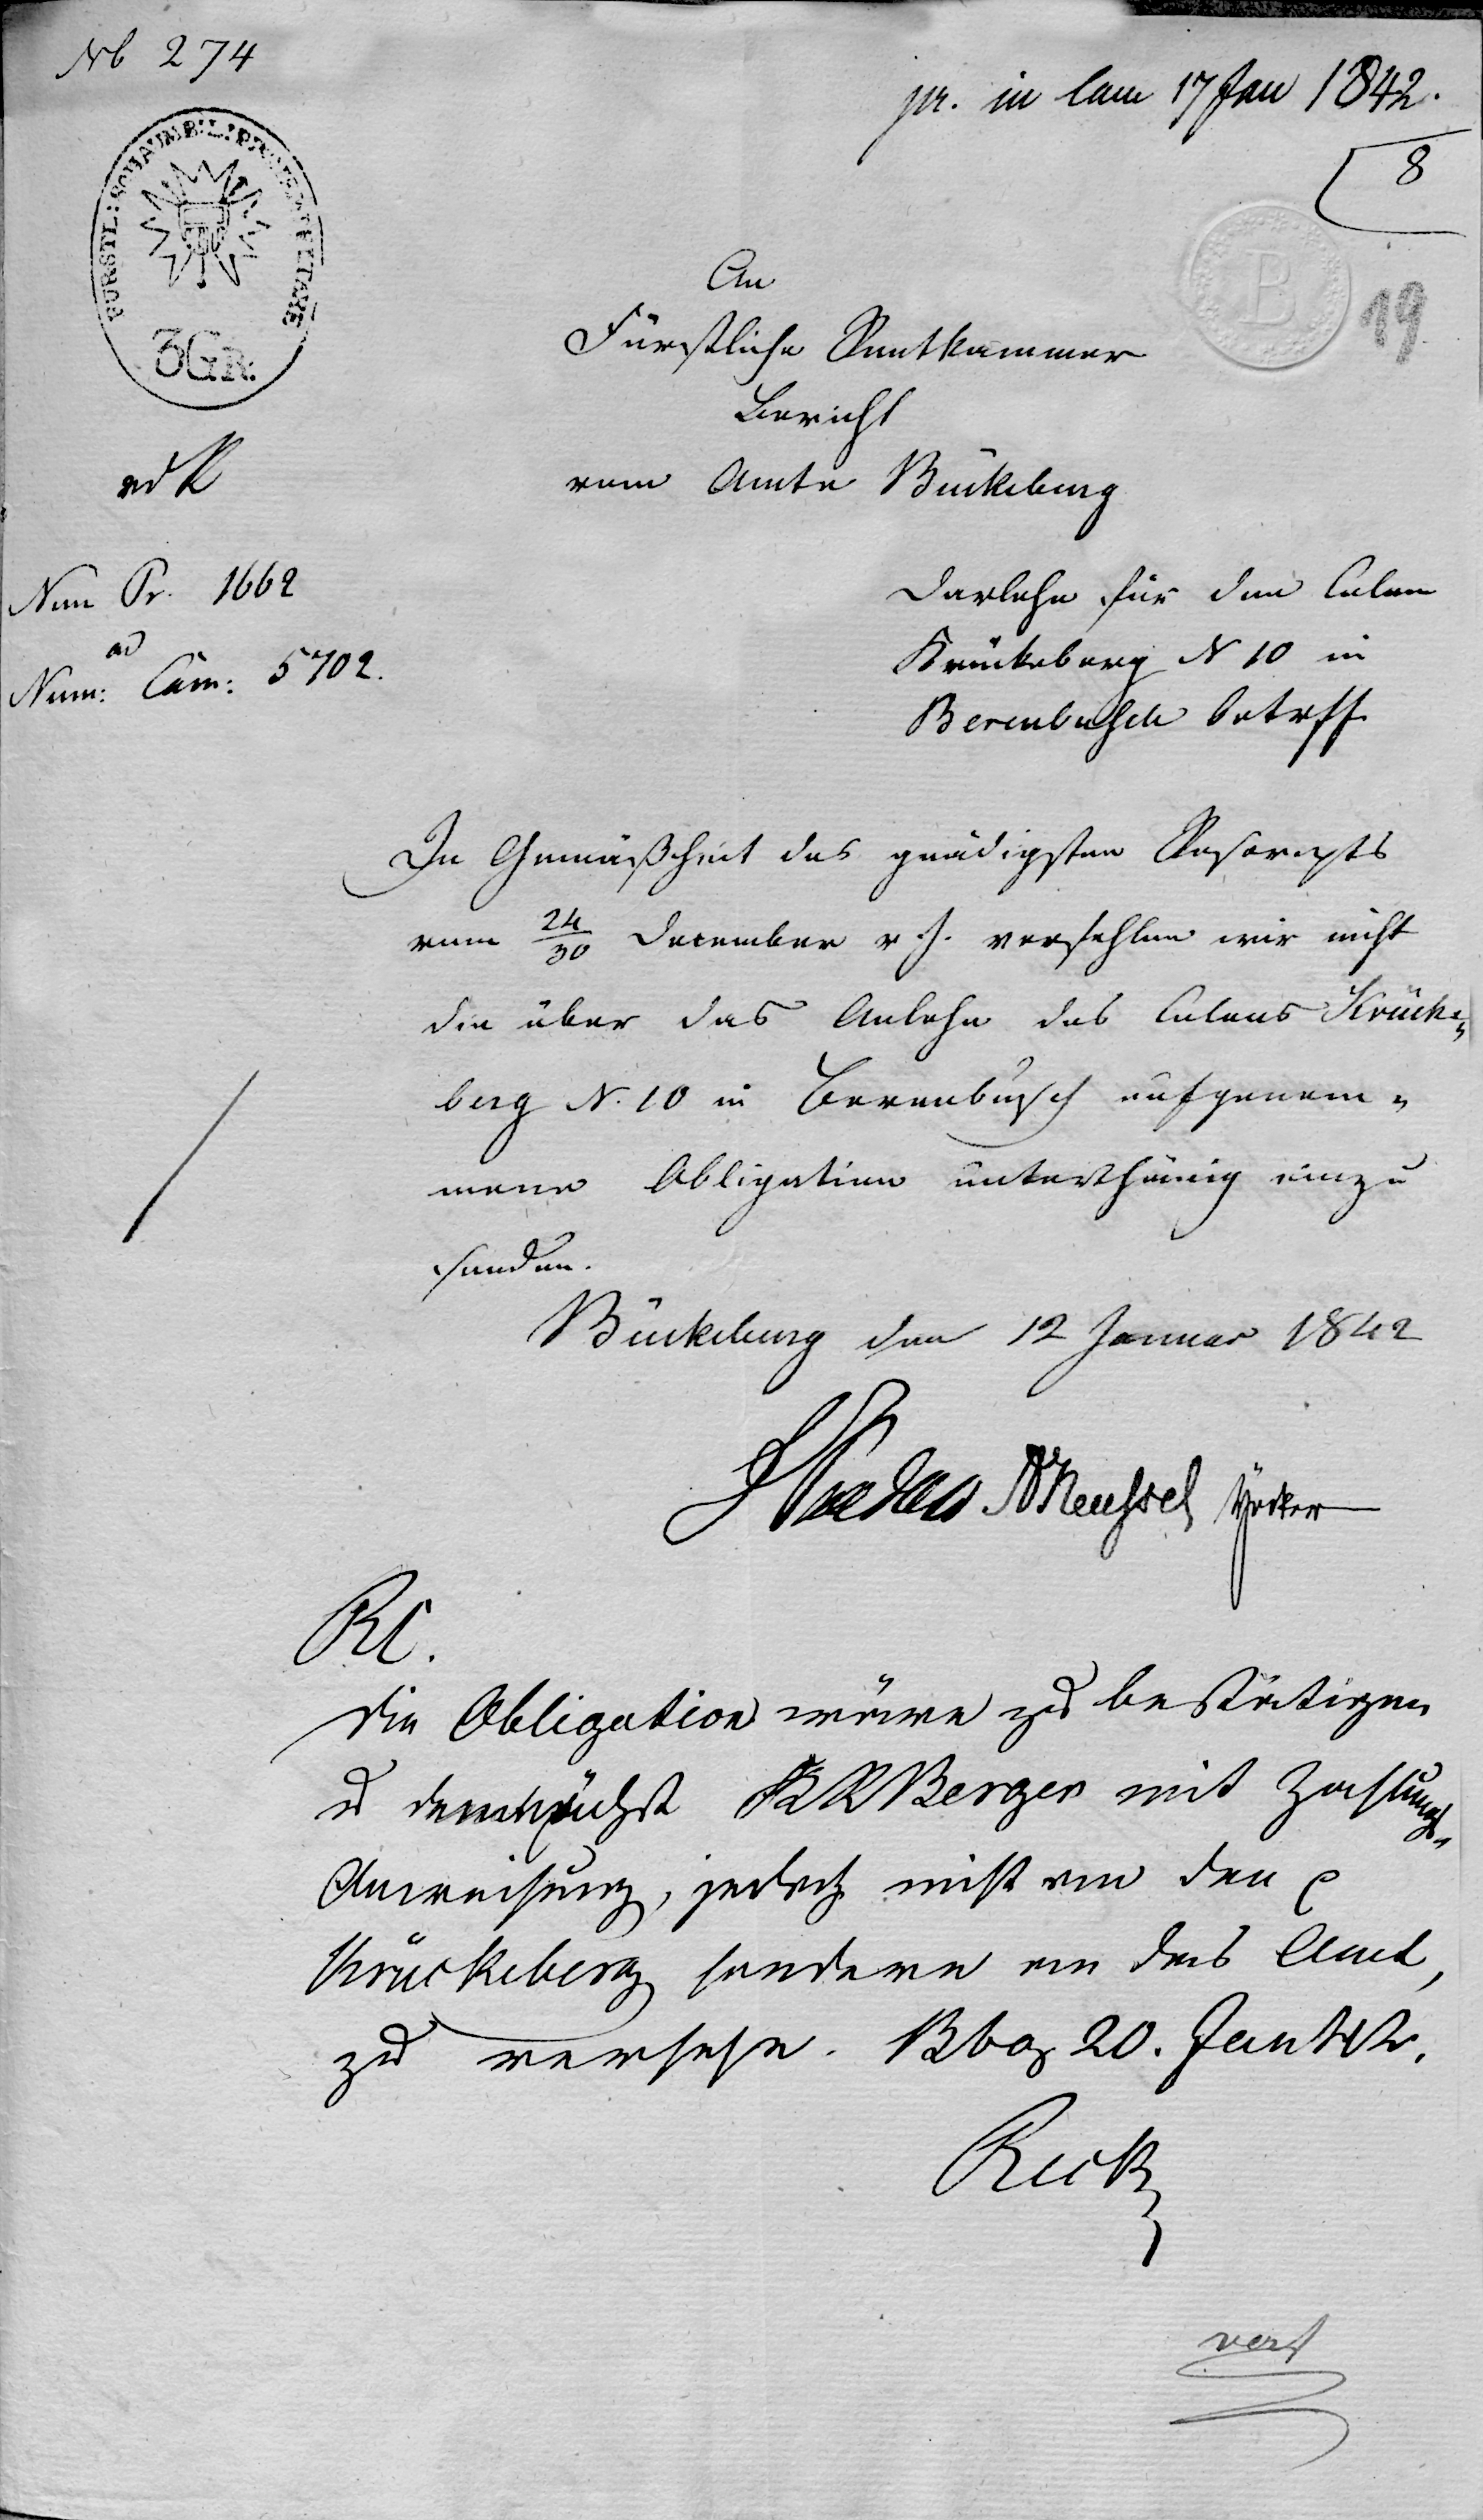 No 274
pr. in Cam 17 Jan 1842.
8
19
FÜRSTL: SCHAUMB: LIPP
3 GR.
B
An
Fürstliche Rentkammer
Bericht
vom Amte Bückeburg
Num Pr. 1662
ad
Num: Cam: 5702.
Darlehn für den Colon
Krückeberg N 10 in
Berenbusch betreff
In Gemäßheit des gnädigsten Rescripts
vom 24/30 December v. J. verfehlen wir nicht
die über das Anlehn des Colons Krücke„
berg N. 10 in Berenbusch aufgenom„
mene Obligation unterthänig einzu
senden.
Bückeburg den 12 Januar 1842
RC.
die Obligation wäre zu bestätigen
u demnächst Berger mit Zahlungs„
Anweisung, jedoch nicht an den p
Krückeberg sondern an das Amt,
zu versehn. Bbg 20. Jan 42.
vert